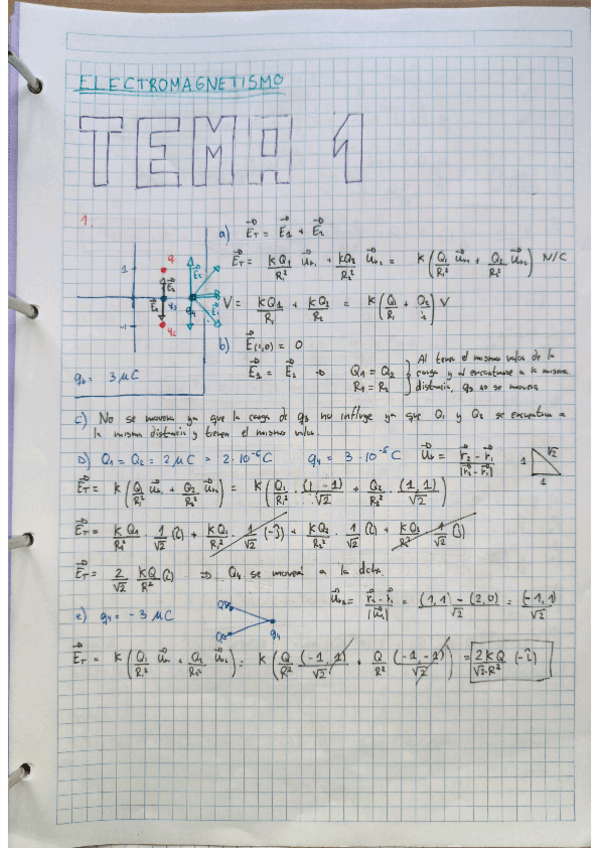 ELECTROMAGNETISMO
TEMA 1
1.
a) E_T = E_1 + E_2
E_T = KQ_1/R_1² u_r1 + KQ_2/R_2² u_r2 = K(Q_1/R_1² u_r1 + Q_2/R_2² u_r2) N/C
1
-1
V = KQ_1/R_1 + KQ_2/R_2 = K(Q_1/R_1 + Q_2/R_2) V
b) E(1,0) = 0
E_1 = E_2 → Q_1 = Q_2
R_1 = R_2
Al tener el mismo valor de la
carga y al encontrarse a la misma
distancia, q_3 no se moverá
q_3 = 3 μC
c) No se moverá ya que la carga de q_3 no influye ya que Q_1 y Q_2 se encuentran a
la misma distancia y tienen el mismo valor.
D) Q_1 = Q_2 = 2 μC = 2·10^-6 C q_4 = 3·10^-6 C u_r = r_2 - r_1/|r_2 - r_1|
1 √2
1
E_T = K(Q_1/R_1² u_r1 + Q_2/R_2² u_r2) = K(Q_1/R_1² · (1,-1)/√2 + Q_2/R_2² · (1,1)/√2)
E_T = KQ_1/R_1² · 1/√2 (i) + KQ_1/R_1² · 1/√2 (-j) + KQ_2/R_2² · 1/√2 (i) + KQ_2/R_2² · 1/√2 (j)
E_T = 2/√2 KQ/R² (i) ⇒ Q_4 se moverá a la dcha.
u_r2 = r_2 - r_1/|u_1| = (1,1) - (2,0)/√2 = (-1,1)/√2
e) q_4 = -3 μC
q_4
E_T = K(Q_1/R_1² u_r1 + Q_2/R_2² u_r2) = K(Q/R² (-1,1)/√2 + Q/R² (-1,-1)/√2) = 2KQ/√2·R² (-i)